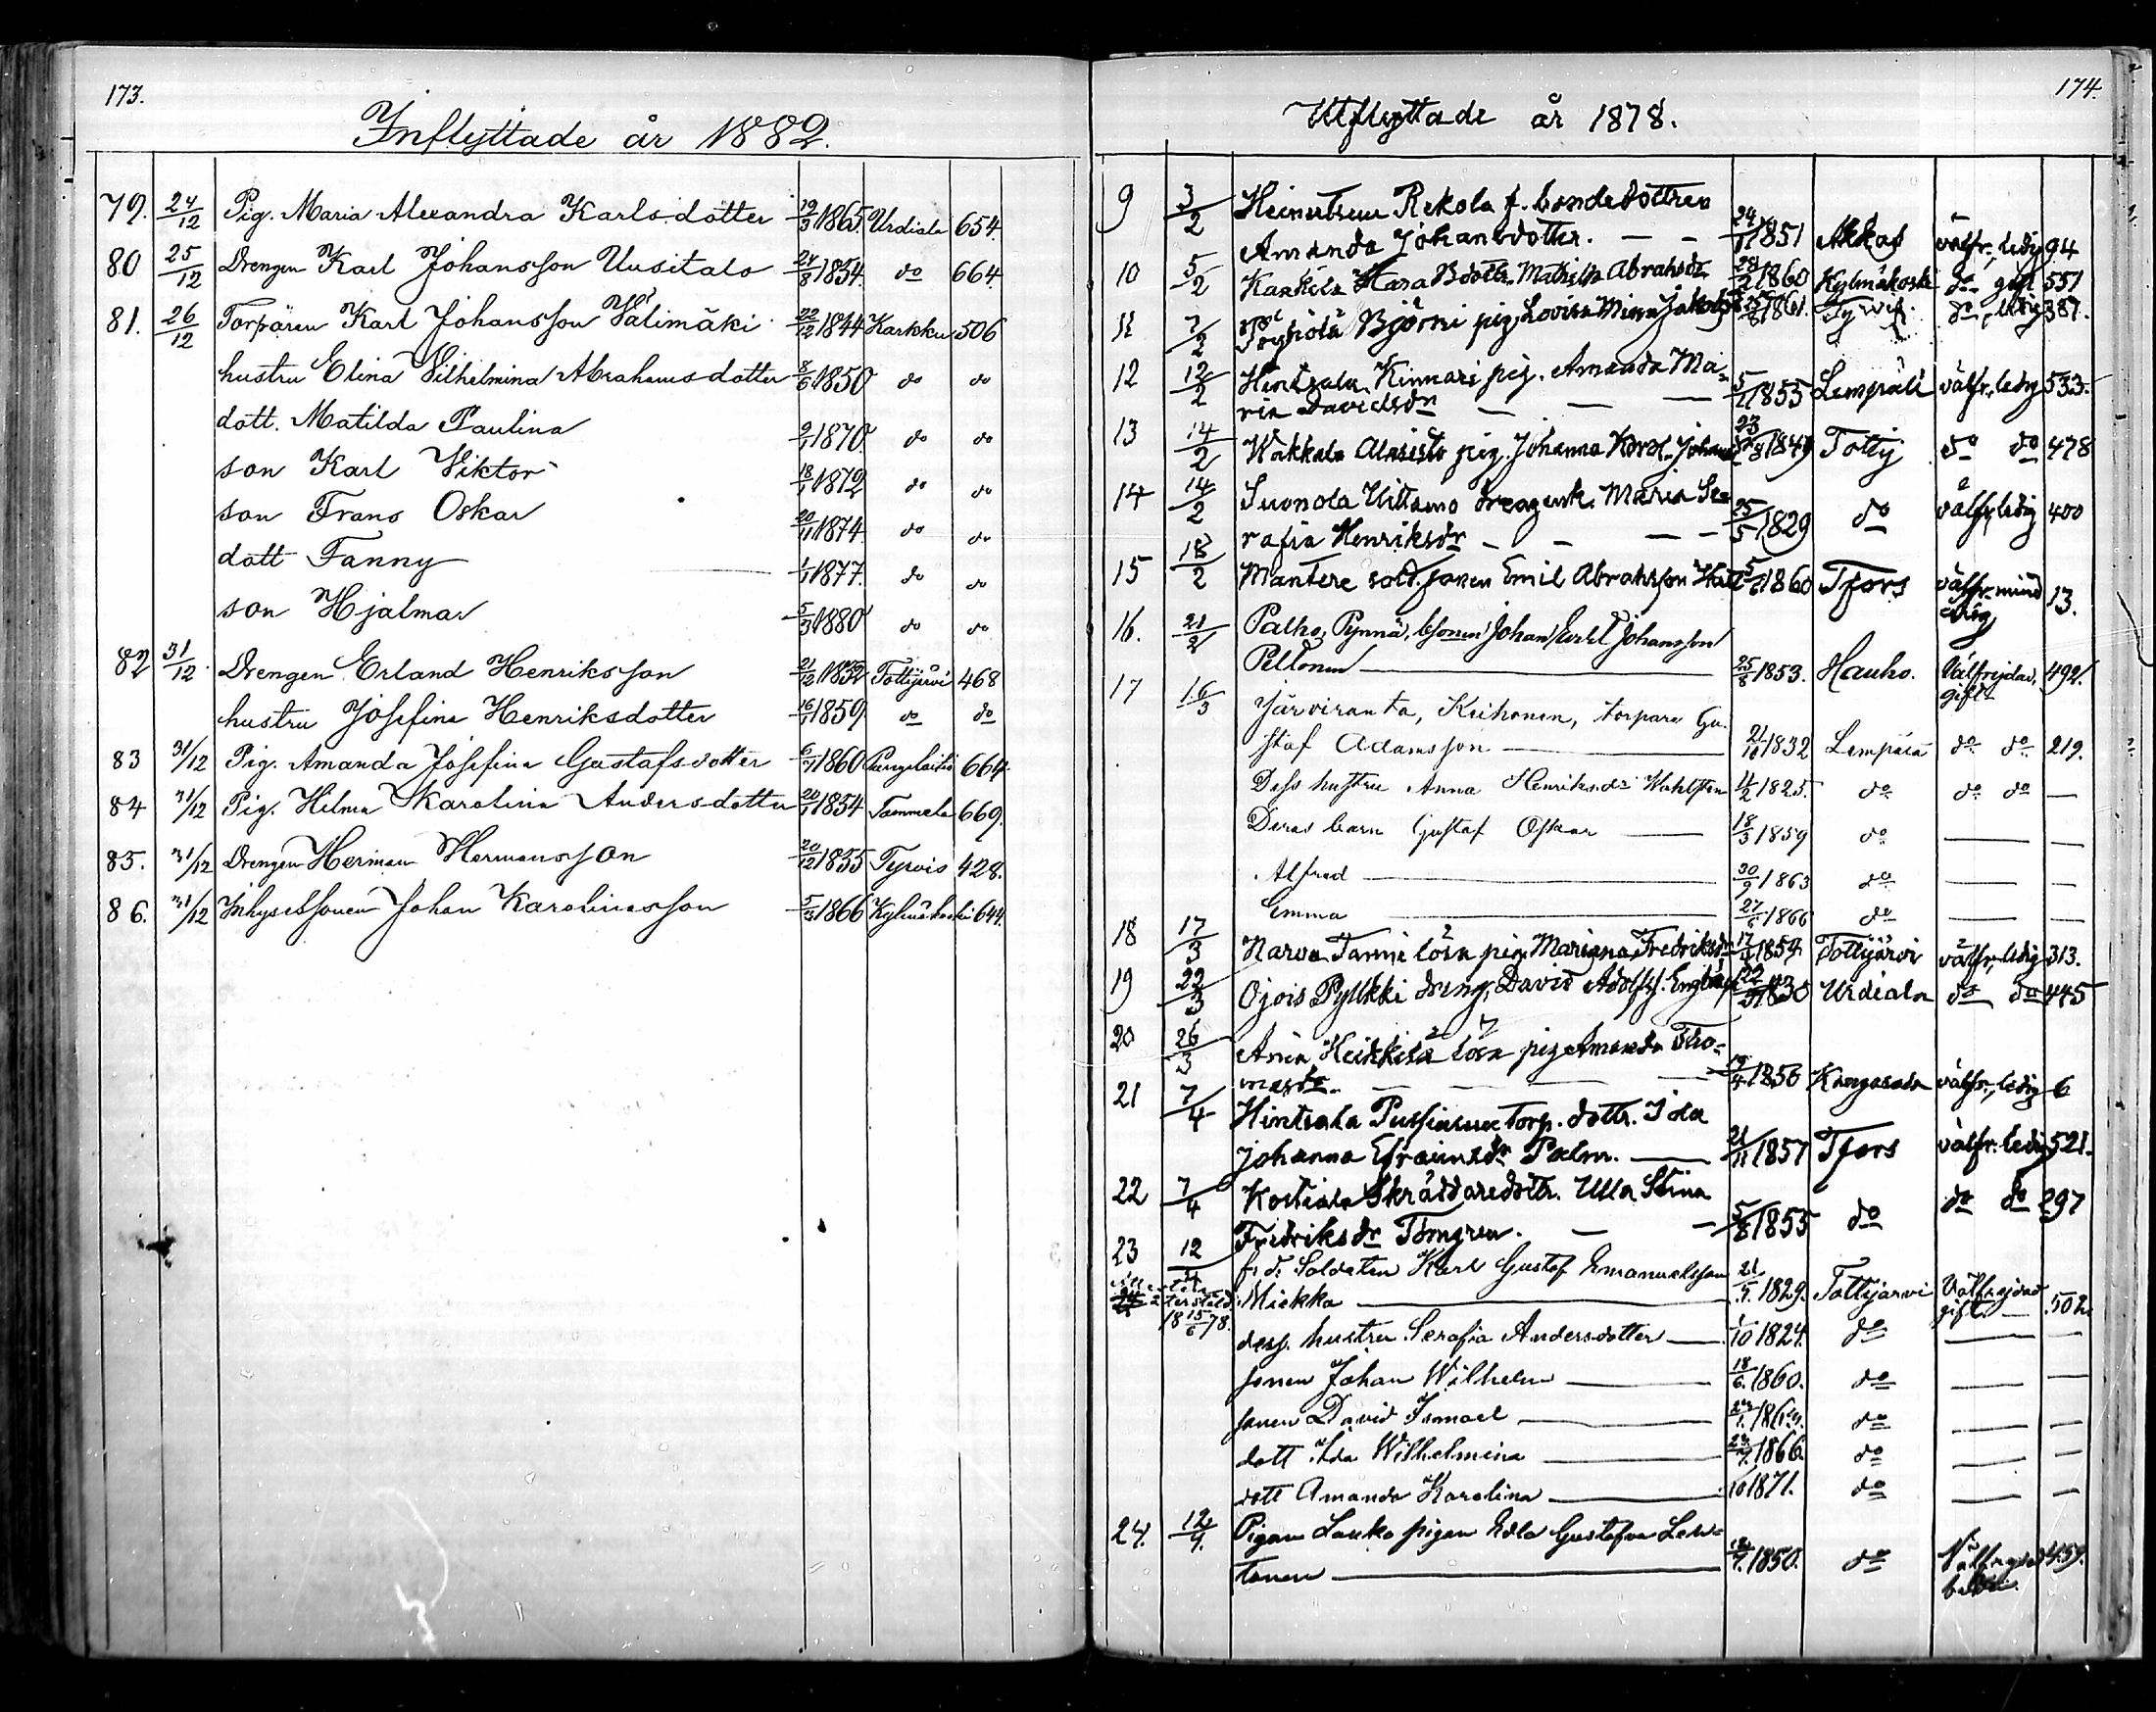 173.
Inflyttade år 1882.
79. 24/12 Pig. Maria Alexandra Karlsdotter 19/3 1865. Urdiala 654.
80 25/12 Drengen Karl Johansson Uusitalo 24/8 1854. do 664.
81. 26/12 Torparen Karl Johansson Välimäki 22/12 1844 Karkku 506
hustru Elina Vilhelmina Abrahamsdotter 8/6 1850 do do
dott. Matilda Paulina 9/1 1870. do do
son Karl Viktor 18/1 1872 do do
son Frans Oskar 20/11 1874 do do
dott Fanny 1/1 1877. do do
son Hjalmar 5/3 1880 do do
82 31/12. Drengen Erland Henriksson 21/12 1832 Tottijärvi 468
hustru Josefina Henriksdotter 16/1 1859 do do
83 31/12 Pig. Amanda Josefina Gustafsdotter 6/7 1860 664.
84 31/12 Pig. Hilma Karolina Andersdotter 20/1 1854 Tammela 669.
85. 31/12 Drengen Herman Hermansson 20/12 1855 Tyrvis 428.
86. 31/12 Inhysessonen Johan Karolinasson 5/3 1866 Kylmäkoski 644.
174.
Utflyttade år 1878.
9 3/2 Rekola f. bondedottren
Amanda Johansdotter. — — 24/11 1851 Akkas välfr, ledig 94
10 5/2 Mathilda Abrahsdr 28/2 1860 Kylmäkoski do gift 551
11 7/2 Björni pig. Lovisa 1861. do, ledig 387.
12 12/2 Hintsala Kinnari pig. Amanda Ma-
ria Davidsdr — — — 5/1 1855 Lempälä välfr, ledig 533.
13 14/2 Wakkala Alasisto pig. Johanna Karol. 23/8 1849 Tottij do do 478
14 14/2 Suonola Uittamo Maria Se-
rafia Henriksdr — — — 25/5 1829 do välfr, ledig 400
15 18/2 Mantere sold. sonen Emil Abrahsson 1860 Tfors välfr. 13.
16. 21/2 Palho, Pynnä, Johan Evert Johansson
Peltonen — 25/8 1853. Hauho. Välfrejdad, 492.
gift
17 16/3 Järviranta, Keihonen, torpare Gu-
staf Adamsson — 21/10 1832 Lempälä do do 219.
Dess hustru Anna Henriksdr Wahlsten 1825. do do do —
Deras barn Gustaf Oskar — 18/3 1859 do — —
Alfred — 30/9 1863 do — —
Emma — 1866 do — —
18 17/3 Narva Tanni lösa pig. Mariana Fredriksdr 1859. Tottijärvi välfr, ledig 313.
19 22/3 Ojois Pylkki dreng. David Adolfss. 1830 Urdiala do do 445
20 26/3 Heikkilä lösa pig Amanda Tho-
masdr. — — — 19/4 1850 Kangasala välfr, ledig 6
21 7/4 Hintsala torp. dottr. Ida
Johanna Efraimsdr Palm. — 21/11 1857 Tfors välfr. ledig 521.
22 7/4 Kostiala Skräddaredottr. Ulla Stina
Fredriksdr Törngren. — — 5/8 1855 do do do 297
23 12/4 f. d. Soldaten Karl Gustaf Emanuelsson
Miekka — 1829. Tottijärvi Välfrejdad 502.
18 15/6 78. gift. —
dess. hustru Serafia Andersdotter — 1/10 1824. do — —
sonen Johan Wilhelm — 18/6. 1860. do — —
sonen David Ismael — do — —
dott Ida Wilhelmina — 1866. do — —
dott Amanda Karolina — 1871. do — —
24. 12/4. Pigan Lauko pigan Edla Gustafva Leh-
tonen — 1850. do